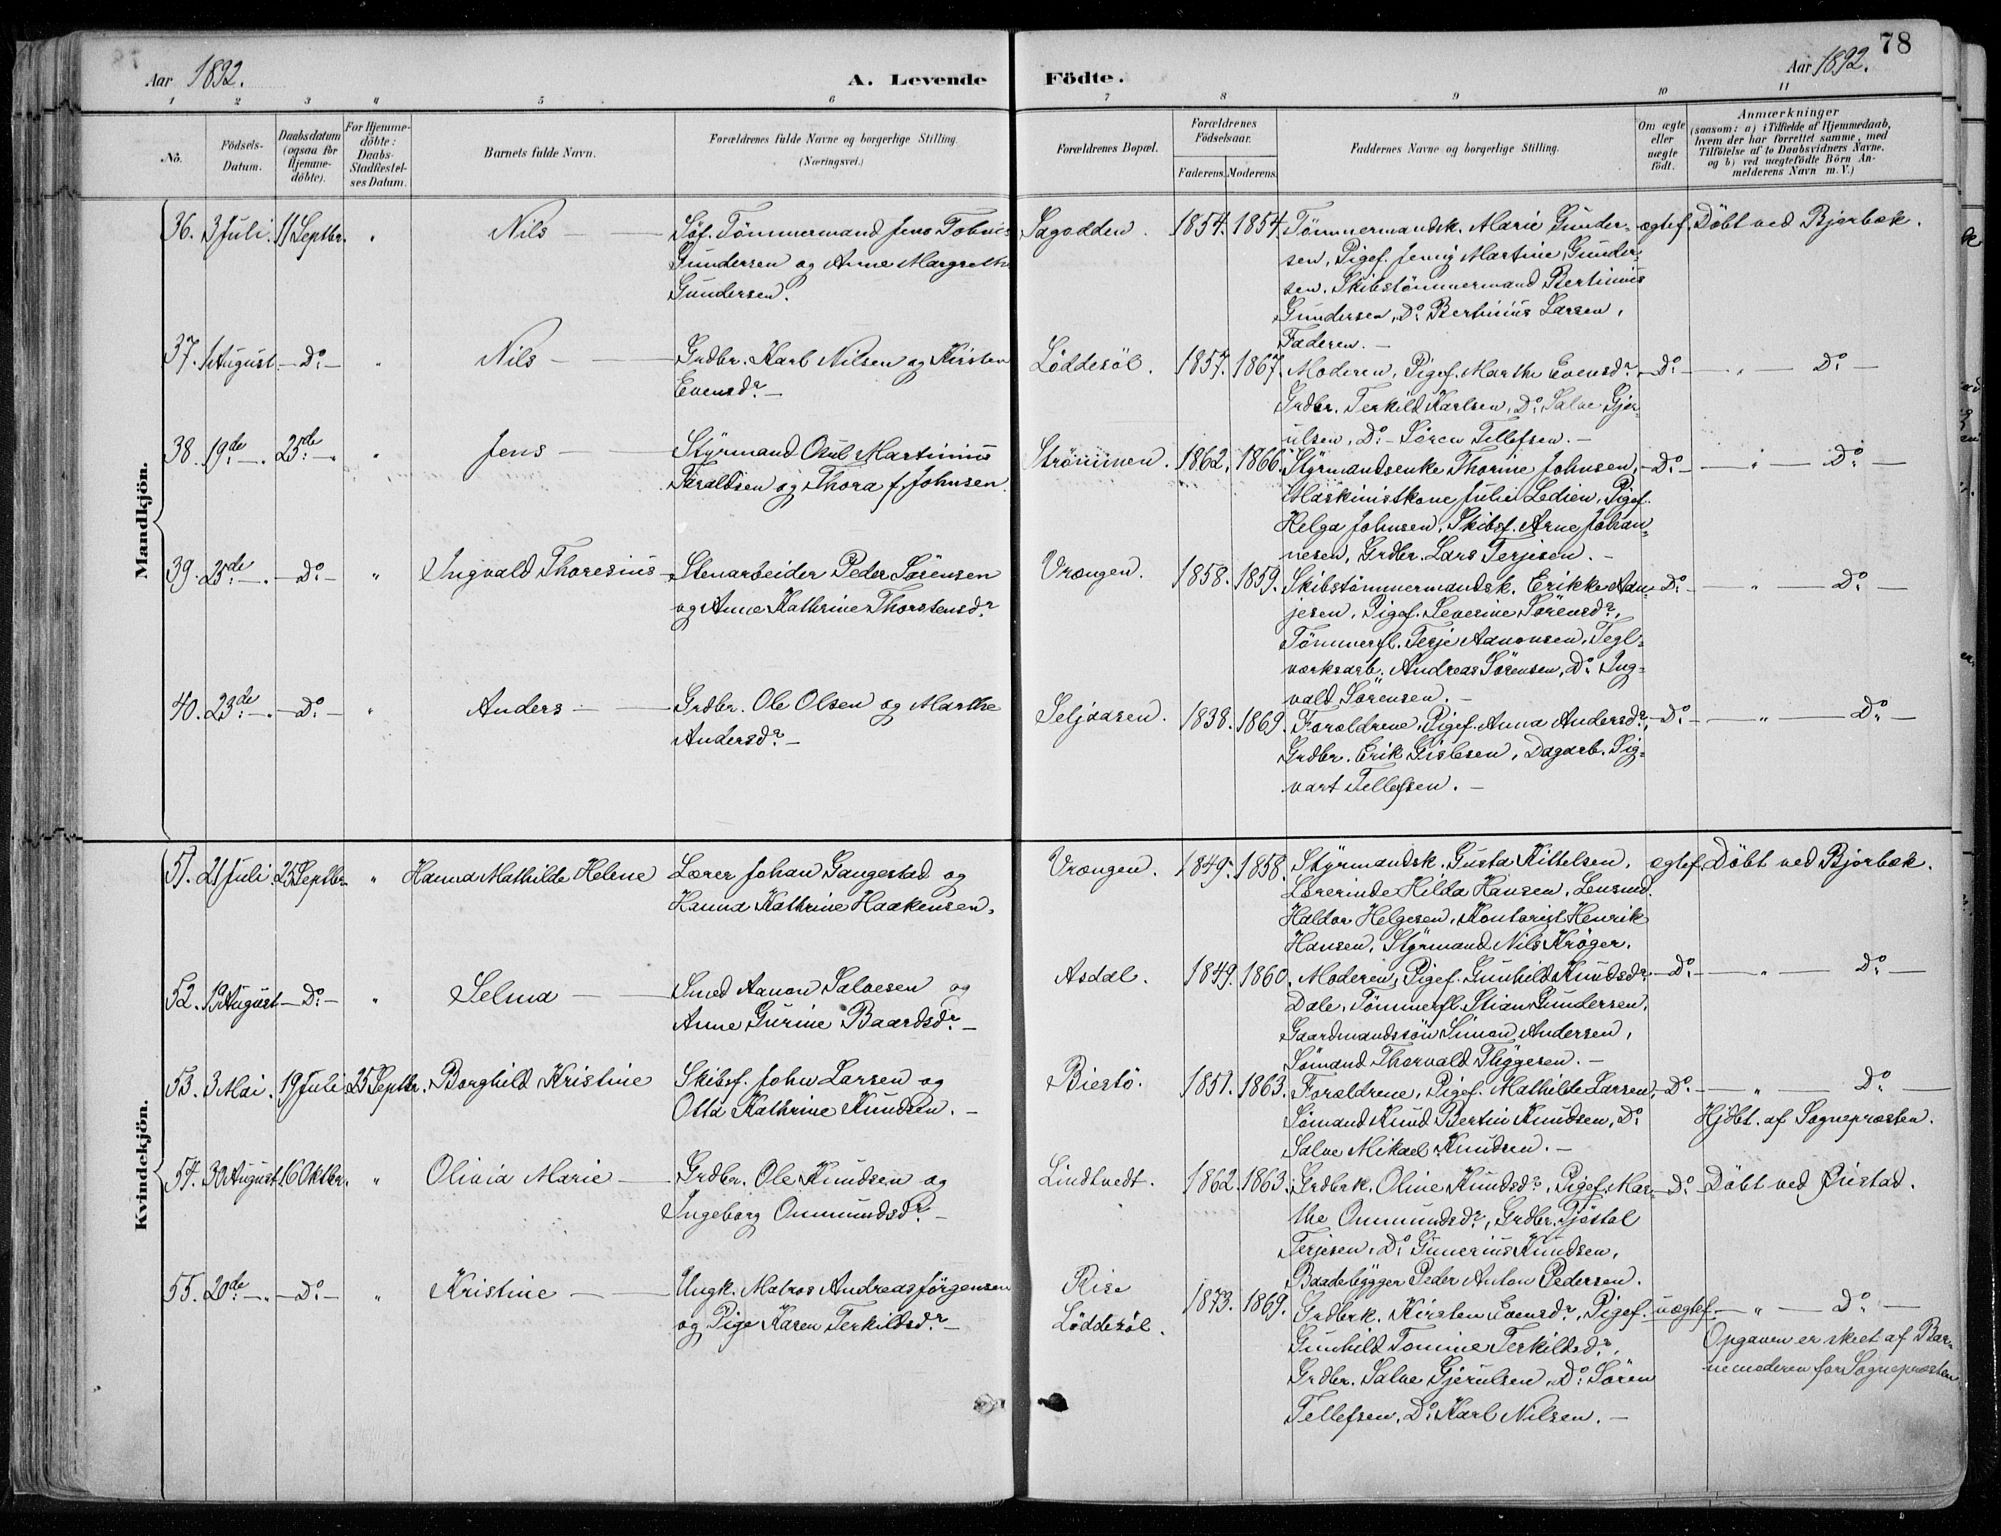 78
Aar 1892.
A. Levende Födte.
Aar 1892.
1 2 3 4 5 6 7 8 9 10 11
No.
Födsels-
Datum.
Daabsdatum
(ogsaa for
Hjemme-
döbte).
For Hjemme-
döbte:
Daabs-
Stadfæstel-
ses Datum.
Barnets fulde Navn.
Forældrenes fulde Navne og borgerlige Stilling.
(Næringsvei.)
Forældrenes Bopæl.
Forældrenes
Födselsaar.
Faderens. Moderens.
Faddernes Navne og borgerlige Stilling.
Om ægte
eller
uægte
født.
Anmærkninger
(saasom: a) i Tilfælde af Hjemmedaab,
hvem der har forrettet samme, med
Tilföielse af to Daabsvidners Navne.
og b) ved uægtefödte Börn An-
melderens Navn m. V.)
Mandkjön.
36. 3 Juli. 11 Septbr. " Nils — Söf. Tömmermand Jens Tobias
Gundersen og Anne Margrethe
Gundersen.
Sagodden. 1854. 1854. Tömmermandsk. Marie Gunder-
sen, Pigef. Jenny Martine Gunder-
sen. Skibstömmermand Bertinius
Gundersen, Do Bertinius Larsen,
Faderen. —
ægtef. Döbt ved Bjorbæk.
37. 1 August. — Do — " Nils — Grdbr. Karl Nilsen og Kirsten
Evensdr. —
Löddesöl. 1857. 1867. Moderen, Pigef. Marthe Evensdr.
Grdbr. Terkild Karlsen, Do Salve Gjer-
ulsen, Do — Sören Tellefsen. —
— Do — " — Do —
38. 19de —. 25de —. " Jens — Styrmand Oluf Martinius
Taraldsen og Thora f. Johnsen.
Strömmen. 1862. 1866. Styrmandsenke Thorine Johnsen,
Maskinistkone Julie Ledien, Pigef.
Helga Johnsen, Skibsf. Arne Johan-
nesen, Grdbr. Lars Terjesen. —
— Do — " — Do —
39. 23de —. — Do — " Ingvald Thoresius — Stenarbeider Peder Sörensen
og Anne Kathrine Thorstensdr.
Vrængen. 1858. 1859. Skibstömmermandsk. Erikke Adn-
jesen, Pigef. Severine Sörensdr.,
Tömmerfl. Terje Aanonsen, Tegl-
værksarb. Andreas Sörensen, Do Ing-
vald Sörensen. —
— Do — " — Do —
40. 23de —. — Do — " Anders — Grdbr. Ole Olsen og Marthe
Andersdr. —
Seljaasen. 1838. 1869. Forældrene, Pigef. Anna Andersdr.,
Grdbr. Erik Gislesen, Dagarb. Sig-
vart Tellefsen. —
— Do — " — Do —
Kvindekjön.
51. 21 Juli. 25 Septbr. " Hanna Mathilde Helene Lærer Johan Gangestad og
Hanna Kathrine Haakensen.
Vrængen. 1849. 1858. Styrmandsk. Gusta Kittelsen,
Lærerinde Hilda Hansen, Lensmd.
Haldor Helgesen, Kontorist Henrik
Hansen, Styrmand Nils Kröger.
ægtef. Döbt ved Bjorbæk.
52. 19 August — Do — " Selma — Smed Aanon Salvesen og
Anne Gurine Baardsdr. —
Asdal. 1849. 1860. Moderen, Pigef. Gunhild Knudsdr.
Dale, Tömmerfl. Stian Gundersen,
Gaardmandssön Simon Andersen,
Sömand Thorvald Thygesen. —
— Do — " — Do —
53. 3 Mai. 19 Juli 25 Septbr. Borghild Kristine Skibsf. John Larsen og
Otta Kathrine Knudsen. —
Biestö. 1851. 1863. Forældrene, Pigef. Mathilde Larsen,
Sömand Knud Bertin Knudsen, Do
Salve Mikael Knudsen. —
— Do — " — Do —
Hjdbt. af Sognepræsten.
54. 30 August 16 Oktbr. " Olivia Marie — Grdbr. Ole Knudsen og
Ingeborg Ommundsdr. —
Lindtvedt. 1862. 1863. Grdbrk. Oline Knudsdr., Pigef. Mar-
the Ommundsdr., Grdbr. Tjöstol
Terjesen, Do Gunerius Knudsen,
Baadebygger Peder Anton Pedersen.
— Do — Döbt ved Öiestad.
55. 20de —. — Do — " Kristine — Ungk. Matros Andreas Jörgensen
og Pige Karen Terkildsdr. —
Rise
Löddesöl.
1873. 1869. Grdbrk. Kirsten Evensdr., Pigef.
Gunhild Tomine Terkildsdr.,
Grdbr. Salve Gjerulsen, Do Sören
Tellefsen, Do Karl Nilsen. —
uægtef. — " — Do —
Opgaven er skeet af Bar-
nemoderen for Sognepræsten